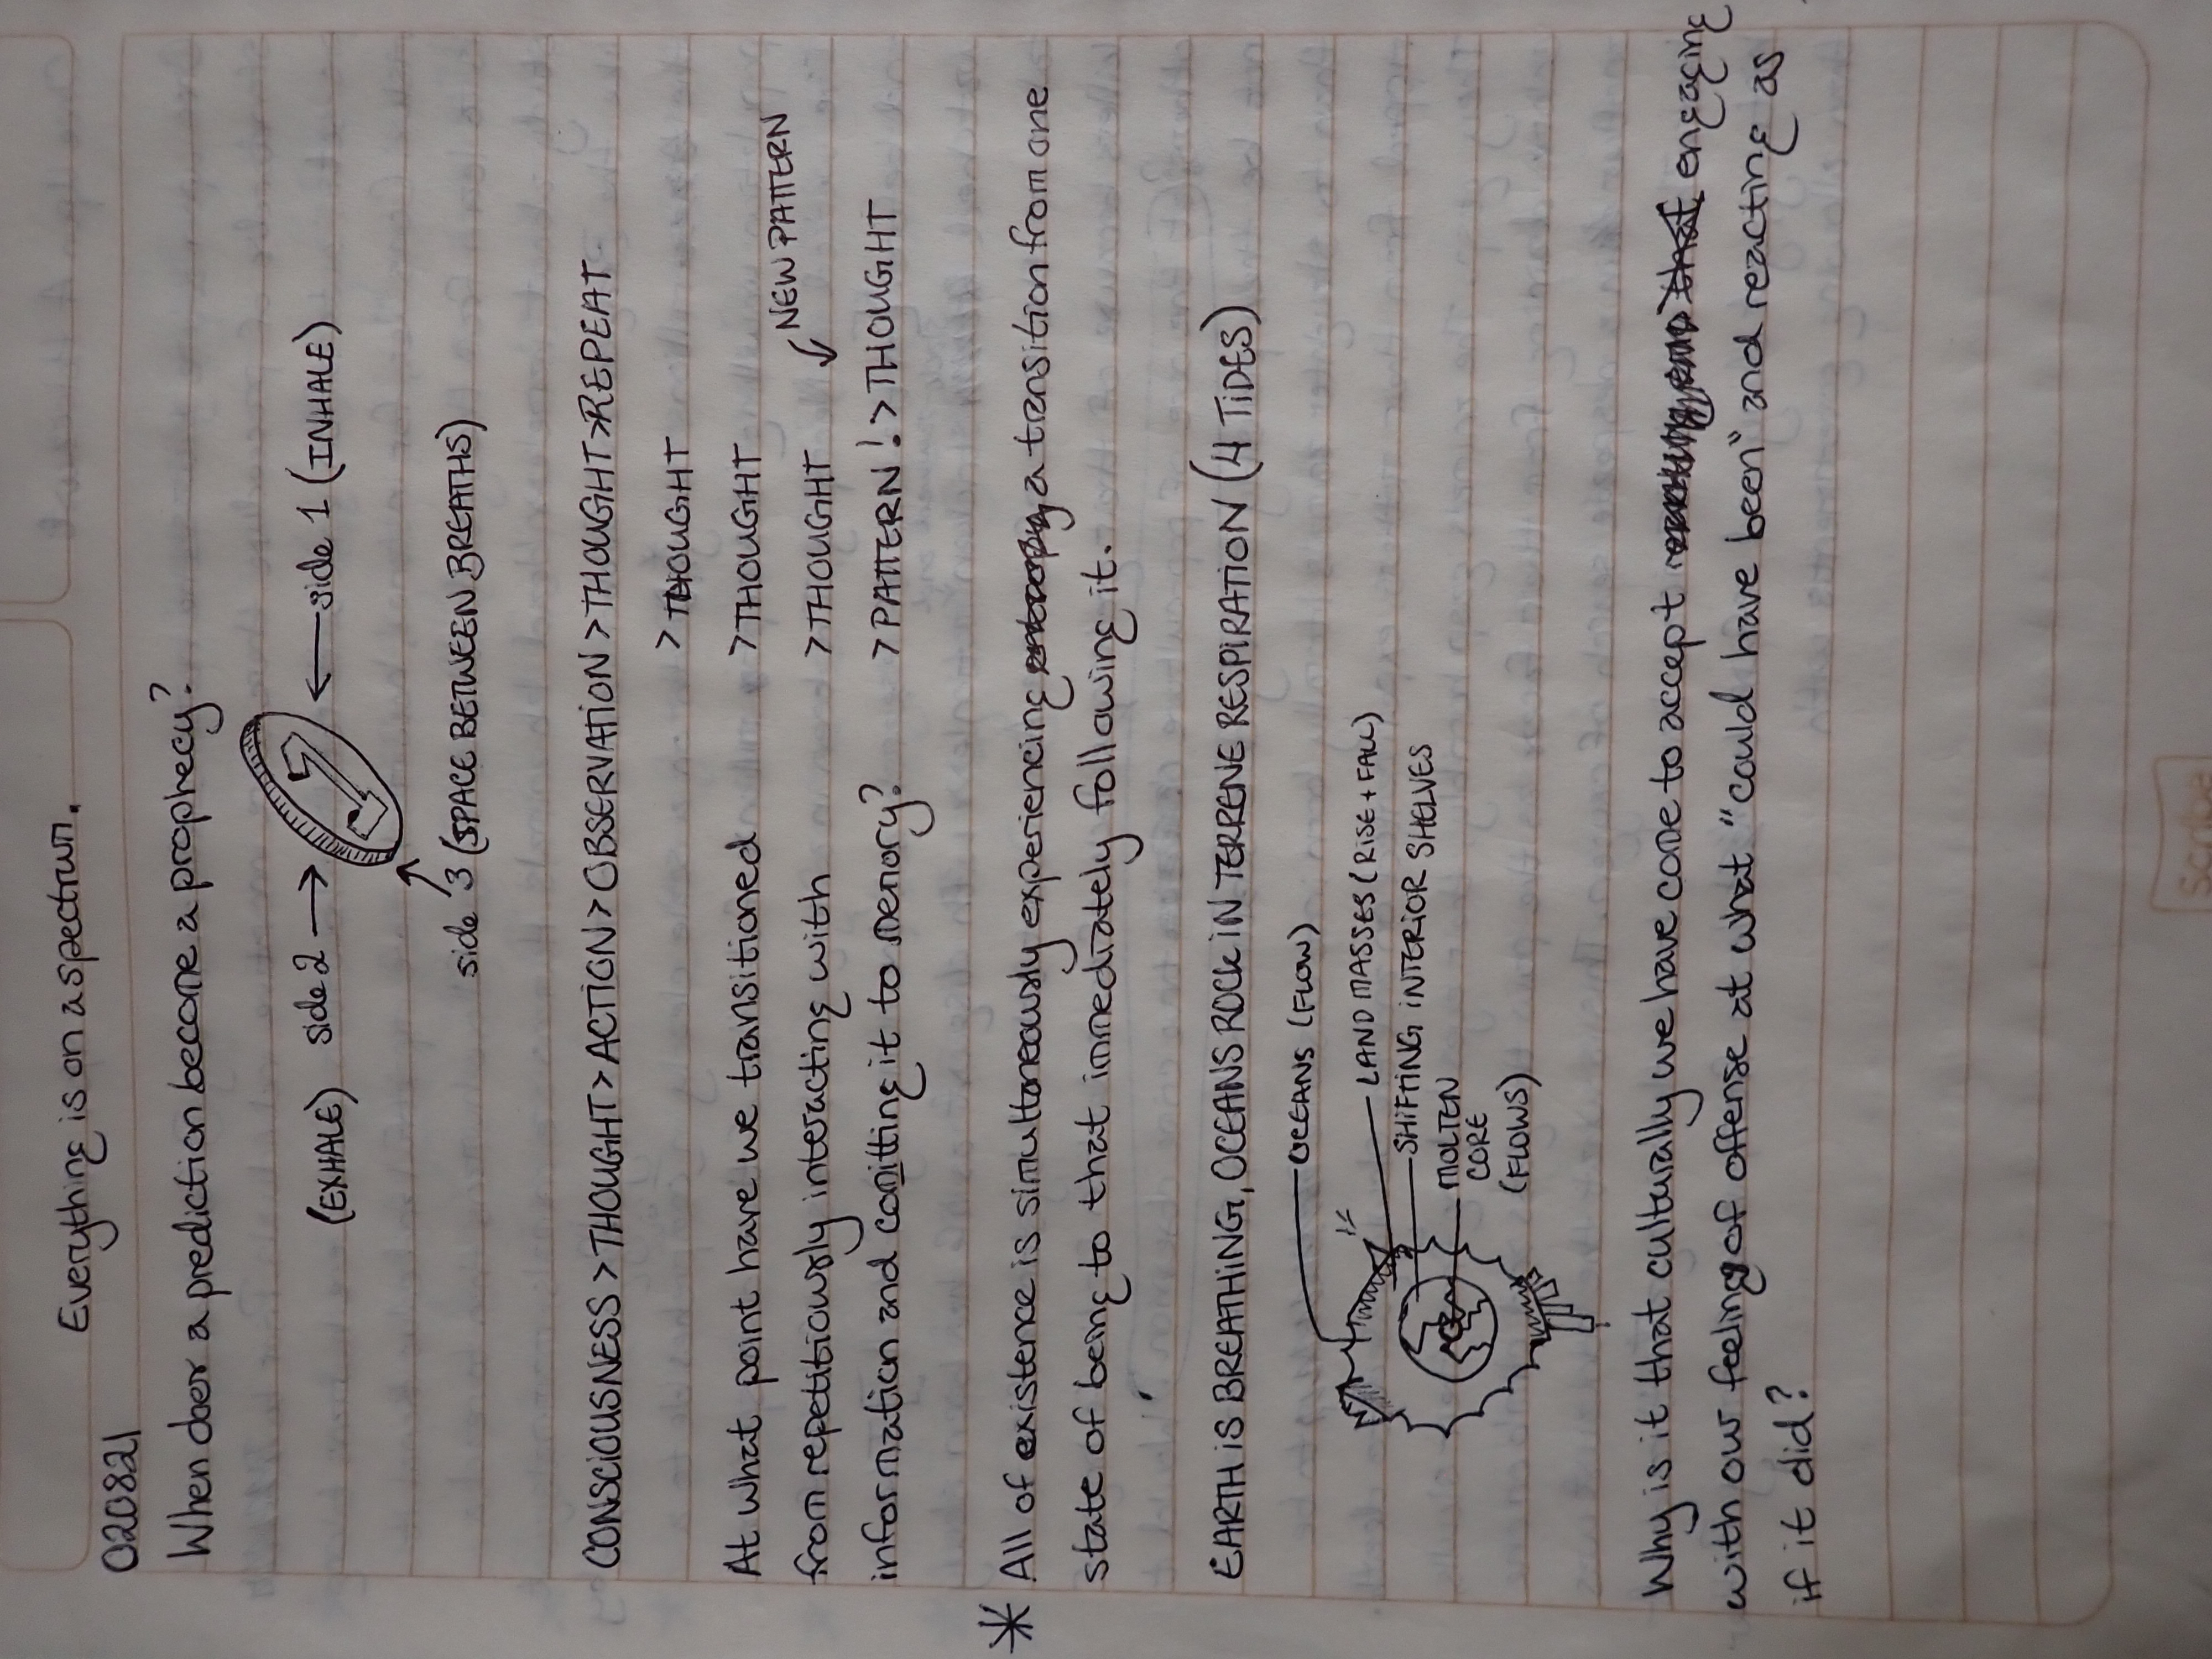 Everything is on a spectrum.
020821
When does a prediction become a prophecy?
(EXHALE) side 2 → ← side 1 (INHALE)
side 3 (SPACE BETWEEN BREATHS)
CONSCIOUSNESS > THOUGHT > ACTION > OBSERVATION > THOUGHT > REPEAT
> THOUGHT
At what point have we transitioned > THOUGHT
NEW PATTERN
from repetitiously interacting with > THOUGHT
information and comitting it to memory? > PATTERN! > THOUGHT
* All of existence is simultaneously experiencing entropy a transition from one
state of being to that immediately following it.
EARTH IS BREATHING, OCEANS ROCK IN TERRENE RESPIRATION (4 TIDES)
OCEANS (FLOW)
LAND MASSES (RISE + FALL)
SHIFTING INTERIOR SHELVES
MOLTEN
CORE
(FLOWS)
Why is it that culturally we have come to accept that engaging
with our feeling of offense at what "could have been" and reacting as
if it did?
Scribe